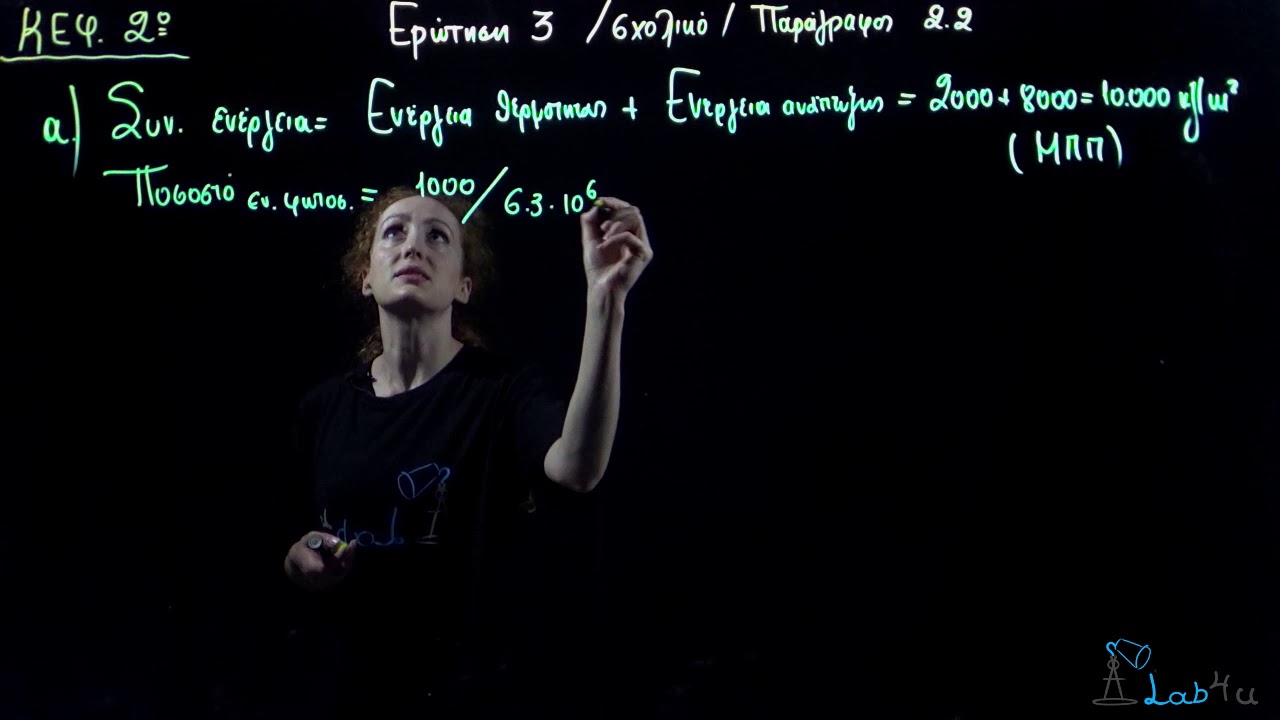 ΚΕΦ. 2º
Ερώτηση 3 / σχολικό / Παράγραφος 2.2
α.) Συν. ενέργεια = Ενέργεια θερμότητας + Ενέργεια ανάπτυξης = 2000 + 8000 = 10.000 kJ/m²
(ΜΠΠ)
Ποσοστό εν. φωτοσ. = 1000 / 6.3 · 10⁶
Lab4u